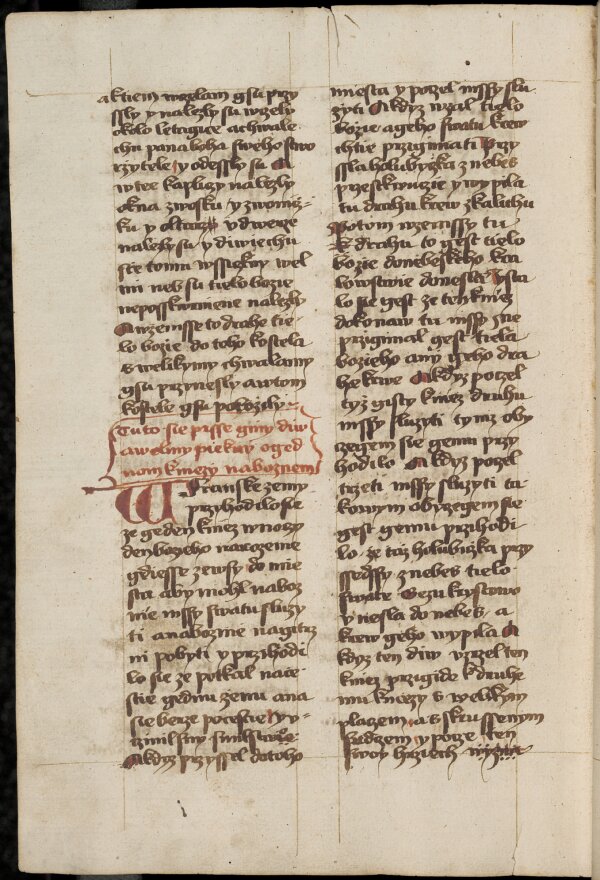 aktiem wzelam gsu przy
ssly y nalezly su wczely
okolo letagice achwale
chu pana boha sweho stwo
rzytele y odessly su A
wtee kaplicy nalezly
okna zwosku y zwoniczi
ku y oltarz y dwerze
nalezly su y diwiechu
sie tomu wssickni wel
mi neb su tielo bozie
neposskwrnene nalezly
A wzemsse to drahe tie
lo bozie do toho kostela
s welikymy chwalamy
gsu przynesly a wtom
kostele gsu polozily
Tuto sie pisse giny diw
a welmy piekny o ged
nom kniezy naboznem
W Franske zemy
przyhodilo sie
ze geden kniez wnoczy
den bozyeho narozenie
gdiesse zewsy do mie
sta aby mohl naboz
nie mssy swatu sluzy
ti a nabozne na gitrz
ni pobyti y przihodi
lo sie ze potkal na ce
stie gednu zenu a na
sie berze poczestie y v
czinil s ni smilstwie
A kdyz przyssel do toho
miesta y poczel mssy slu
zyti A kdyz wzal tielo
bozie a geho swatu krew
chtie przigimati Przy
ssla holubyczka z nebes
przestkwucie y wypila
tu drahu krew z kalichu
Potom wzemssy tu
drahu to gest tielo
bozie do nebeskeho kra
lowstwie donesla Osta
lo sie gest ze ten kniez
dokonaw tu mssy zne
przigimal gest tiela
bozieho any geho dra
he krwe A kdyz poczel
tyz gisty kniez druhu
mssy sluzyti tymz oby
czegem sie gemu przy
hodilo A kdyz poczel
trzeti mssy sluzyti ta
kowym obyczegem sie
gest gemu przihodi
lo ze taz holubiczka przy
ssedssy z nebes tielo
swate Gezu krystowo
y nesla do nebes a
krew geho wypila A
kdyz ten diw vzrzel ten
kniez przigide k druhe
mu kniezy s welikym
placzem a s skrussenym
srdczem y powie ten
swoy hrziech